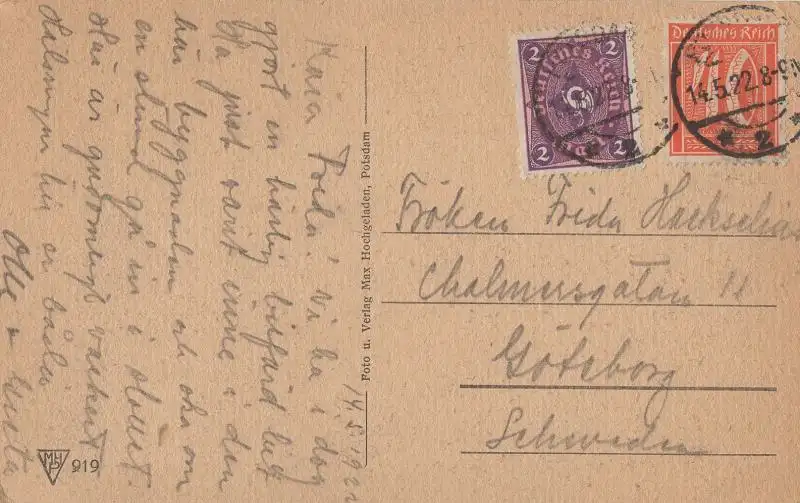 14.5.1922
Kära Frida! Vi ha i dag
gjort en härlig bilfärd hit
Ha just varit inne i den
här byggnaden och ska om
en stund gå in i slottet.
Här är gudomligt vackert
Hälsningar till er båda
Olle o Greta
Foto u. Verlag Max Hochgeladen, Potsdam
MHP
919
2 2
Deutsches Reich
2 2
Deutsches Reich
40
14.5.22.8-9
* 2 *
Fröken Frida
Chalmersgatan 11
Göteborg
Schweden